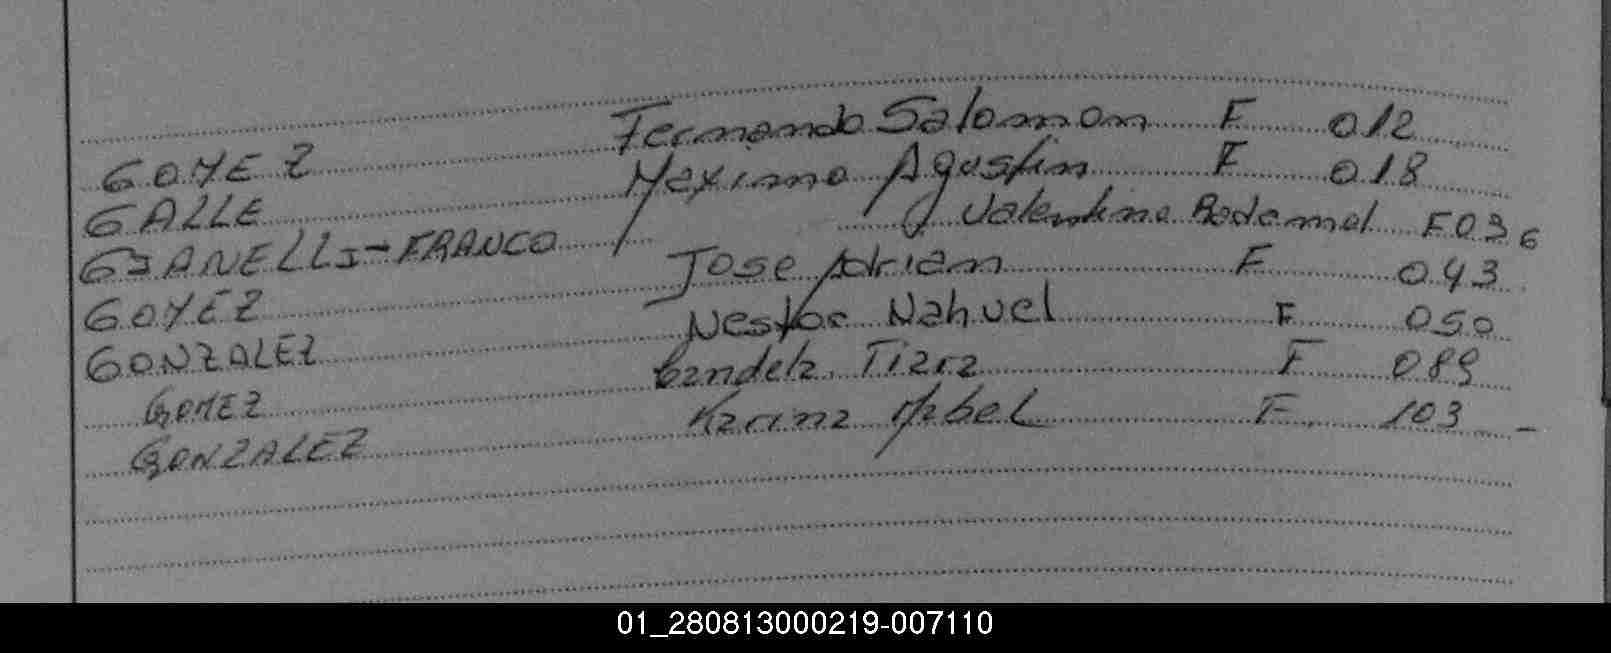 GOMEZ Fernando Salomon F 012
GALLE Maximo Agustin F 018
GIANELLI-FRANCO Valentino F036
GOMEZ Jose Adrian F 043
GONZALEZ Nestor Nahuel F 050
GOMEZ Candela Tiara F 089
GONZALEZ Karina Mabel F 103
01_280813000219-007110